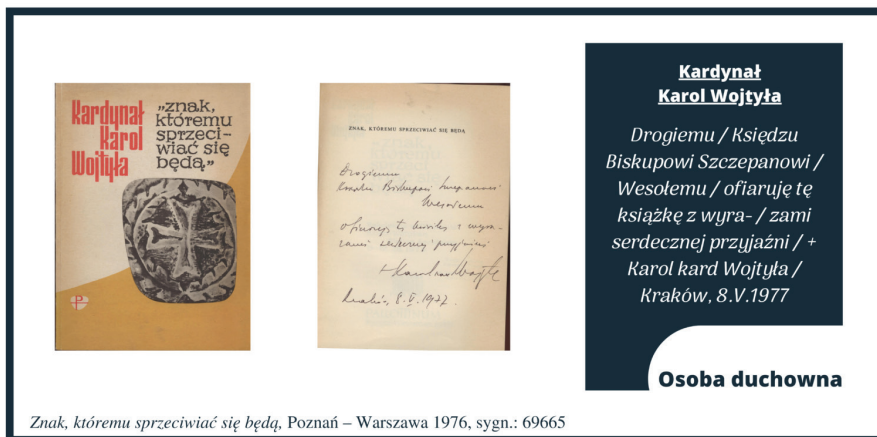 Kardynał
Karol
Wojtyła
„znak,
któremu
sprzeci-
wiać się
będą”
P
ZNAK, KTÓREMU SPRZECIWIAĆ SIĘ BĘDĄ
Drogiemu
Księdzu Biskupowi Szczepanowi
Wesołemu
ofiaruję tę książkę z wyra-
zami serdecznej przyjaźni
+ Karol kard Wojtyła
Kraków, 8.V.1977.
Kardynał
Karol Wojtyła
Drogiemu / Księdzu
Biskupowi Szczepanowi /
Wesołemu / ofiaruję tę
książkę z wyra- / zami
serdecznej przyjaźni / +
Karol kard Wojtyła /
Kraków, 8.V.1977
Osoba duchowna
Znak, któremu sprzeciwiać się będą, Poznań – Warszawa 1976, sygn.: 69665